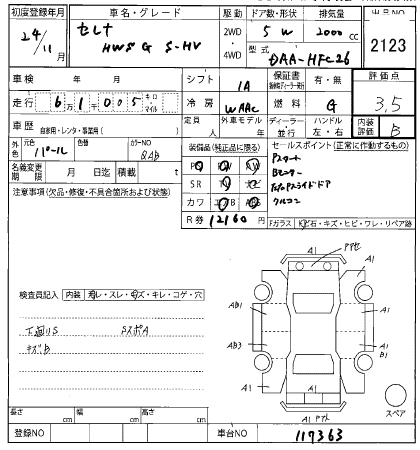 初度登録年月 車名・グレード 駆動 ドア数・形状 排気量 出品NO
24/11月 セレナ 2WD 5 W 2000 cc 2123
HWS G S-HV 4WD 型式 DAA-HFC26
車検 年 月 シフト IA 保証書 有・無 評価点
走行 6 1 0 0 5 キロ・マイル 冷房 WAAC 燃料 G 3.5
車歴 自家用・レンタ・事業用( ) 定員 人 外車モデル 年 ディーラー 並行 ハンドル 左・右 内装評価 B
外色 元色 パール 色替 カラーNO QAB
装備品(純正品に限る) セールスポイント(正常に作動するもの)
名義変更期限 月 日迄 積載 t
PS PW AW Pスタート
SR TV ナビ Bモニター
カワ エアB
注意事項(欠品・修復・不具合箇所および状態)
クルコン
R券 12160 円
Fガラス 飛石・キズ・ヒビ・ワレ・リペア跡
A1 A1
検査員記入 内装 汚レ・スレ・キズ・キレ・コゲ・穴
AB1 A1
下廻りS SスポA
キズB
AB3 A1
B1
A1 A1
A1
スペア
長さ cm 幅 cm 高さ cm
登録NO 車台NO 117363